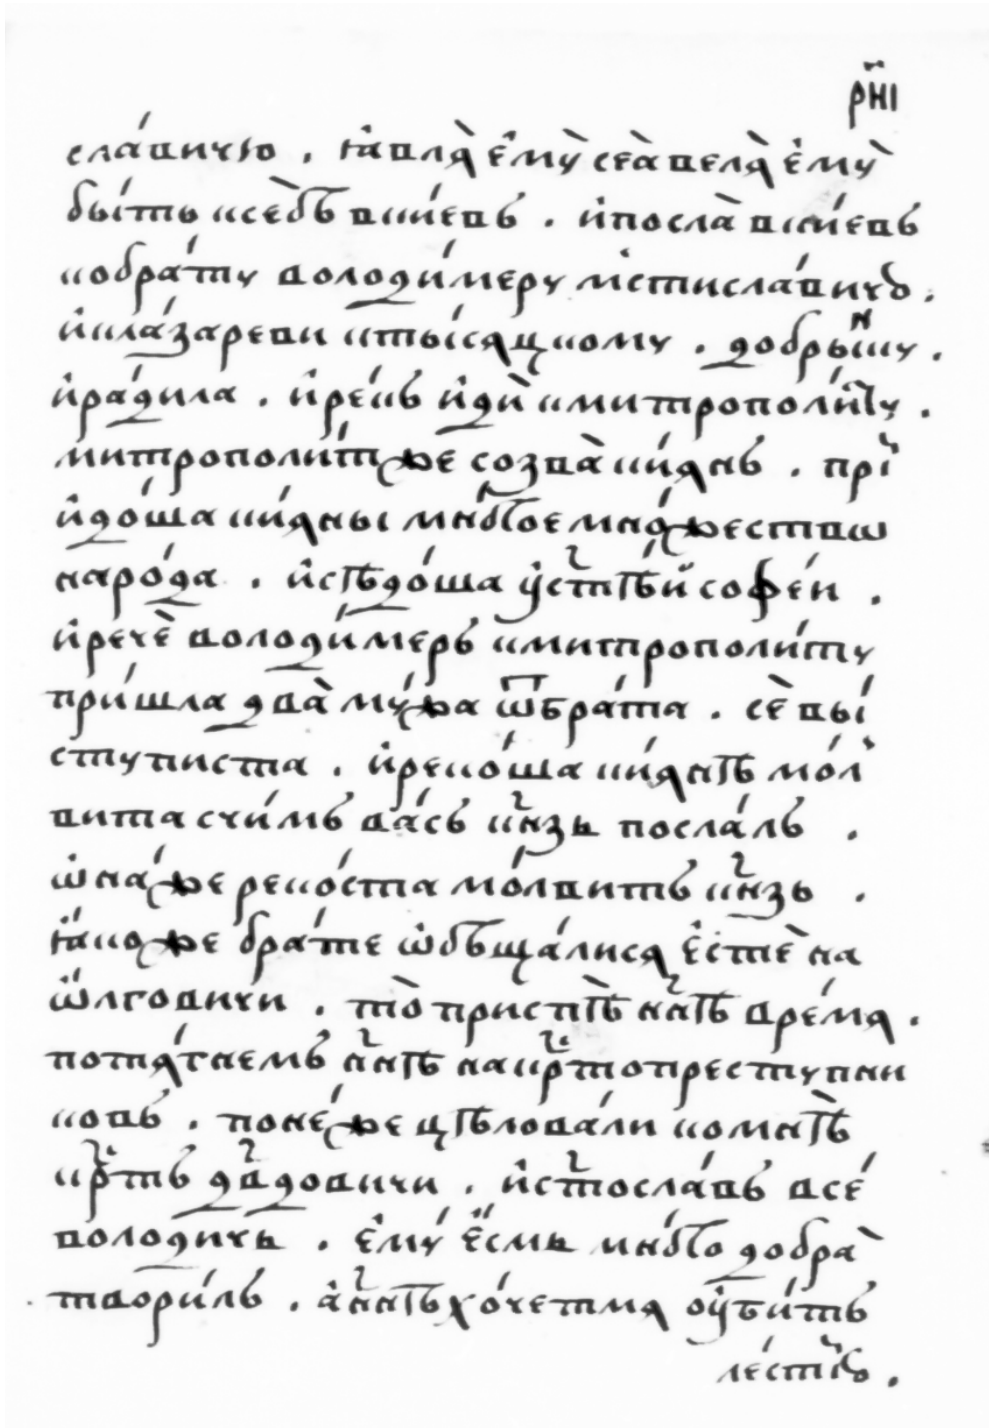 рни҃
сла́вичю . ꙗ҆вля̀ є҆мꙋ̀ сеа̀ веля̀ є҆мꙋ̀
бы́ть и себѣ̀ в кі́евъ . и҆посла̀ в кі́евъ
к обра́тꙋ володи́мерꙋ мⷭ҇тисла́вичю .
и҆ к ла́зареви к ты́сяцкомꙋ . добры́нкꙋ .
и҆ ра́дила . и҆ ре́къ и҆дѝ к митрополи́тꙋ .
митрополи́тже созва̀ кі́янъ . при
и҆до́ша кі́яны мно́гое мно́жествѡ
наро́да . и҆ сѣдо́ша ᲂу҆ ст҃ѣй софе́и .
и҆ речѐ володи́меръ к митрополи́тꙋ
пришла два̀ мꙋ́жа ѿ бра́та . сѐ вы́
стꙋписта . и҆ реко́ша кі́янѣ мо́л
вита с чи́мъ ва́съ кн҃зь посла́лъ .
ѡ҆на́же реко́ста мо́лвитъ кн҃зь .
ꙗ҆́коже бра́те ѡ҆бѣща́лися є҆стѐ на
ѡ҆́лговичи . то̀ приспѣ̀ нн҃ѣ вре́мя .
потя́гнемъ нн҃ѣ на крⷭ҇топрестꙋпни
ковъ . поне́же цѣлова́ли ко мнѣ̀
крⷭ҇тъ дв҃довичи . и҆ ст҃осла́въ все́
володичь . є҆мꙋ́ є҆́смь мно́го добра̀
твори́лъ . а҆ нн҃ѣ хо́четмя ᲂу҆би́тъ
ле́стїю .